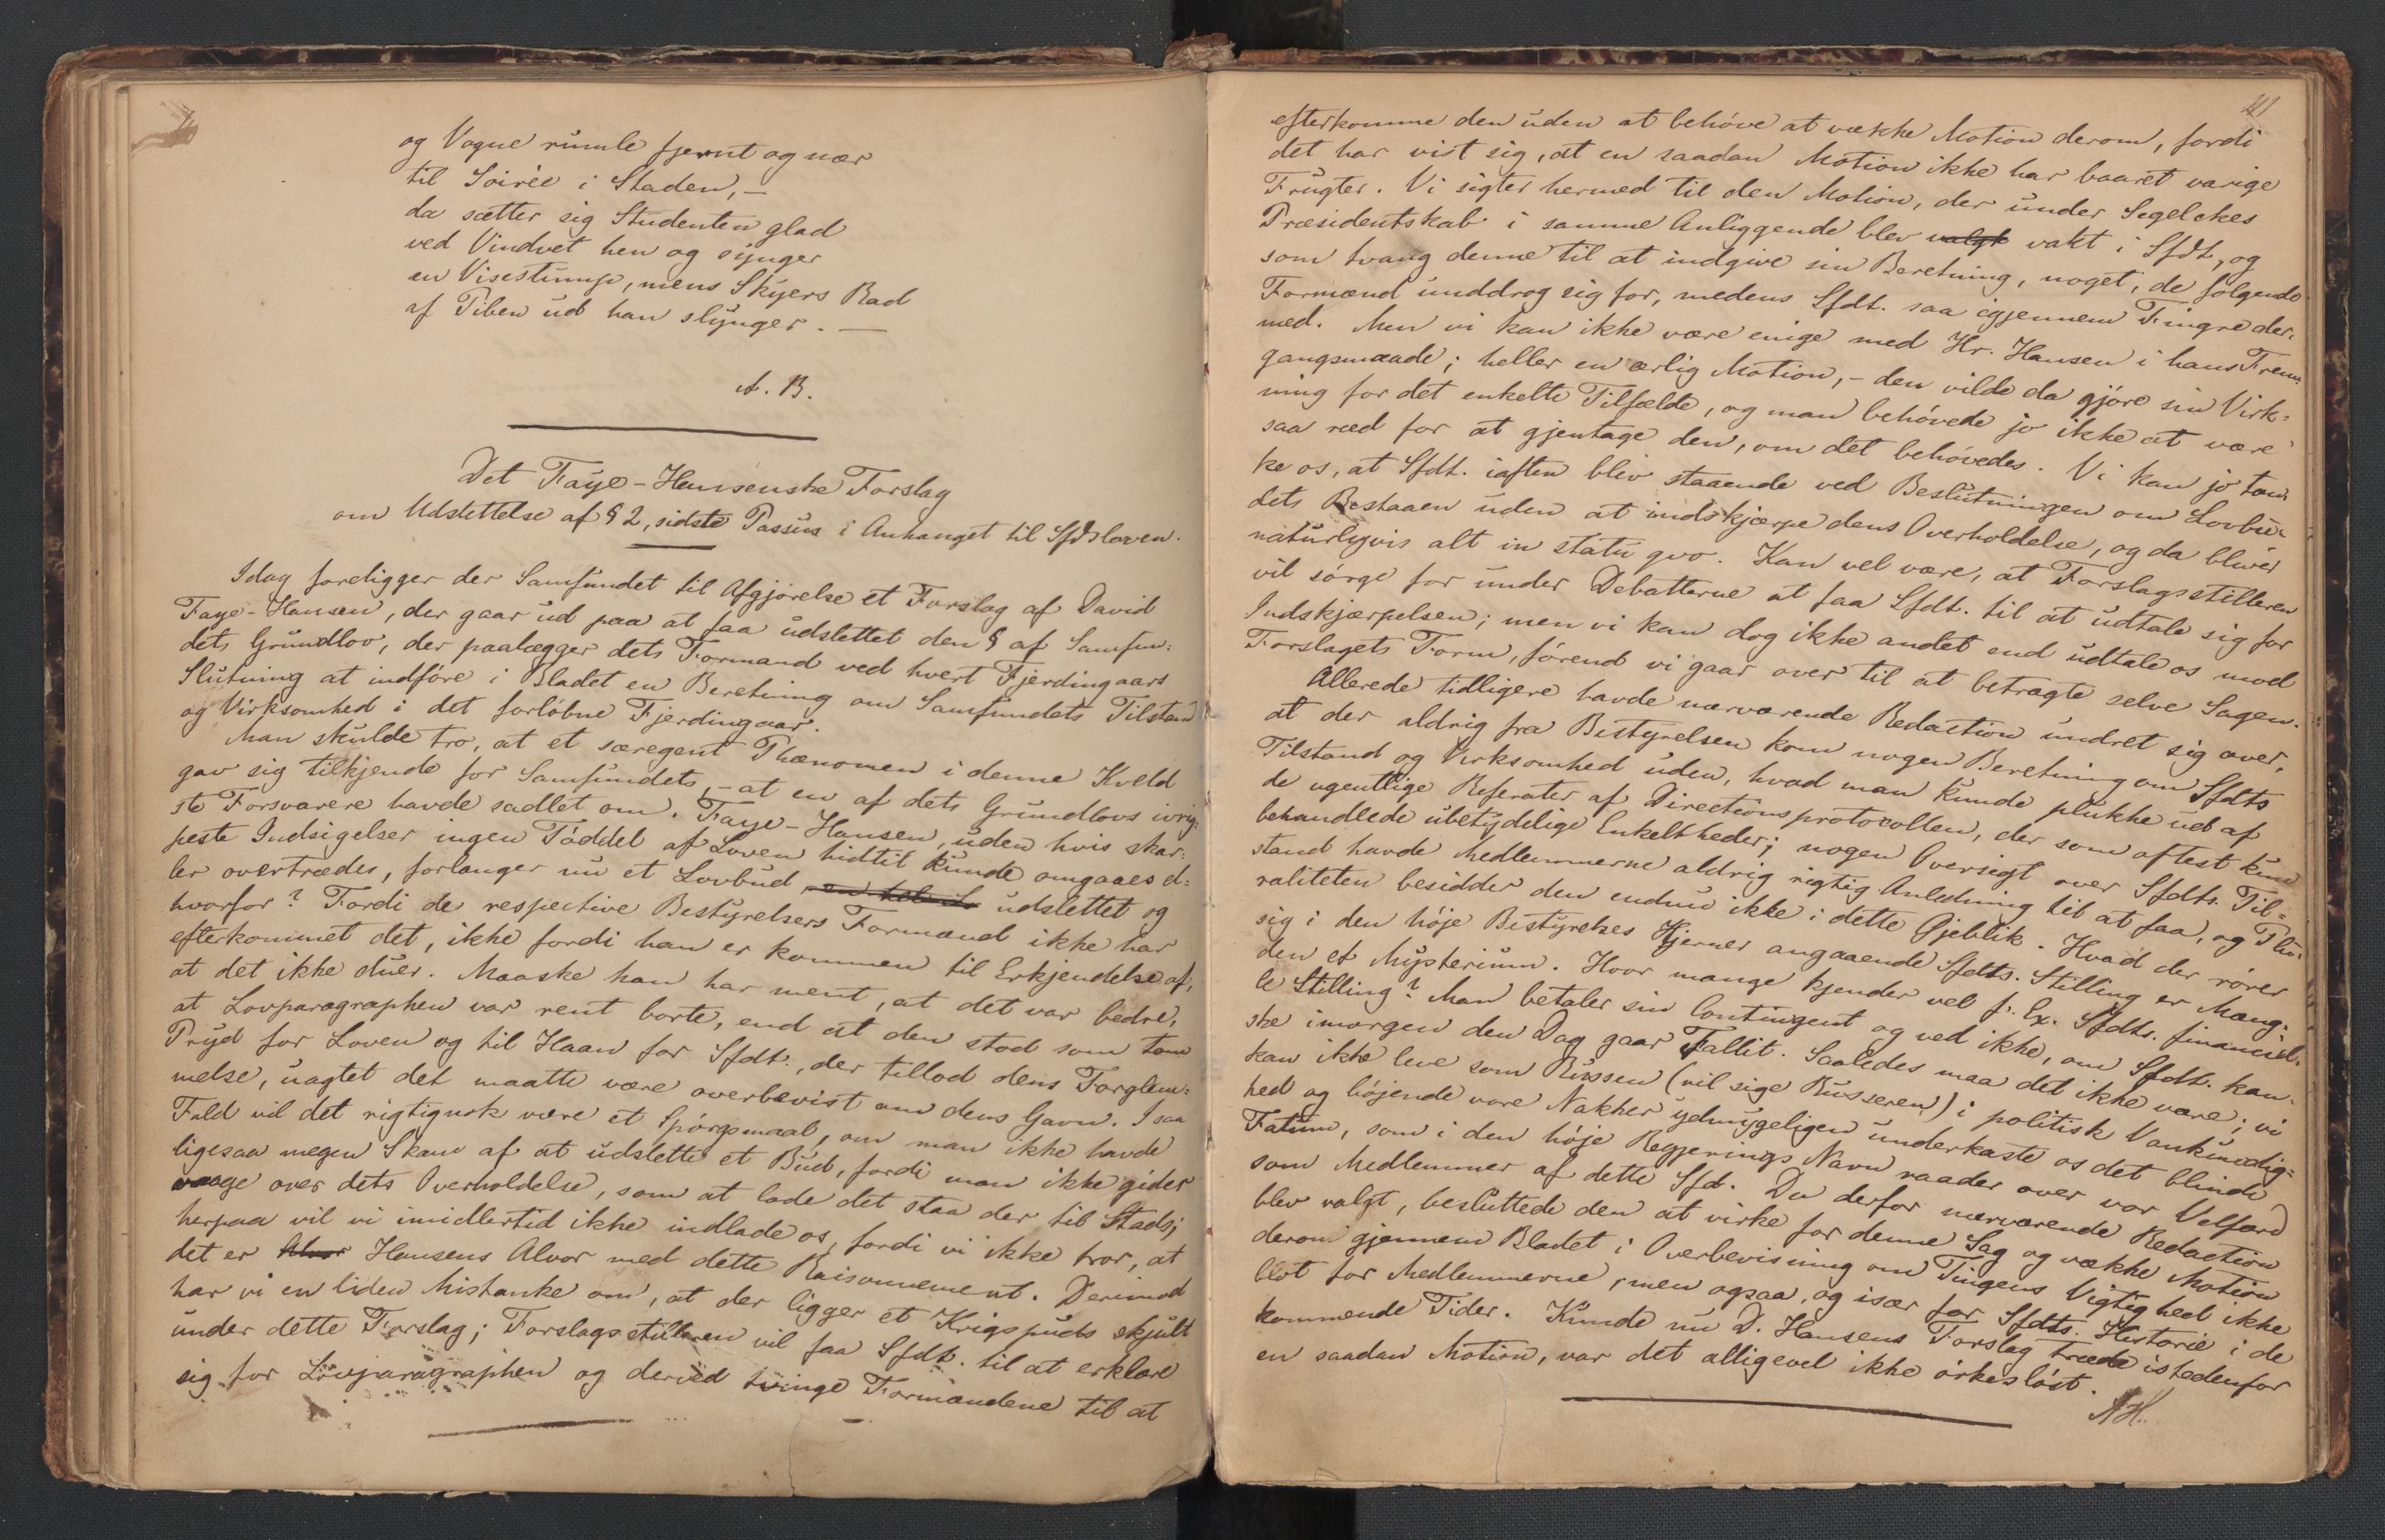 og Vogne rumle fjernt og nær
til Soirée i Staden, –
da sætter sig Studenten glad
ved Vinduet hen og synger
en Visestump, mens Skyers Rad
af Piben ud han slynger. —
A. B.
Det Faye-Hansenske Forslag
om Udslettelse af § 2, sidste Passus i Anhanget til Sfdsloven.
Idag foreligger der Samfundet til Afgjørelse et Forslag af David
Faye-Hansen, der gaar ud paa at faa udslettet den § af Samfun=
dets Grundlov, der paalægger dets Formand ved hvert Fjerdingaars
Slutning at indføre i Bladet en Beretning om Samfundets Tilstand
og Virksomhed i det forløbne Fjerdingaar.
Man skulde tro, at et særegent Phænomen i denne Kveld
gav sig tilkjende for Samfundets, – at en af dets Grundlovs ivrig=
ste Forsvarere havde sadlet om. Faye-Hansen, uden hvis skar=
peste Indsigelser ingen Tøddel af Loven hidtil kunde omgaaes el=
ler overtrædes, forlanger nu et Lovbud udslettet og
hvorfor? Fordi de respective Bestyrelsers Formænd ikke har
efterkommet det, ikke fordi han er kommen til Erkjendelse af,
at det ikke duer. Maaske han har ment, at det var bedre,
at Lovparagraphen var rent borte, end at den stod som tom
Pryd for Loven og til Haan for Sfdt., der tillod dens Forglem=
melse, uagtet det maatte være overbevist om dens Gavn. I saa
Fald vil det rigtignok være et Spørgsmaal, om man ikke havde
ligesaa megen Skam af at udslette et Bud, fordi man ikke gider
vaage over dets Overholdelse, som at lade det staa der til Stads;
herpaa vil vi imidlertid ikke indlade os, fordi vi ikke tror, at
det er Alvor Hansens Alvor med dette Raisonnement. Derimod
har vi en liden Mistanke om, at der ligger et Krigspuds skjult
under dette Forslag; Forslagsstilleren vil faa Sfdt. til at erklære
sig for Lovparagraphen og derved tvinge Formændene til at
41
efterkomme den uden at behøve at vække Motion derom, fordi
det har vist sig, at en saadan Motion ikke har baaret varige
Frugter. Vi sigter hermed til den Motion, der under Segelckes
Præsidentskab i samme Anliggende blev valgt vakt i Sfdt, og
som tvang denne til at indgive sin Beretning, noget, de følgende
Formænd unddrog sig for, medens Sfdt. saa igjennem Fingre der=
med. Men vi kan ikke være enige med Hr. Hansen i hans Frem=
gangsmaade; heller en ærlig Motion, – den vilde da gjøre sin Virk=
ning for det enkelte Tilfælde, og man behøvede jo ikke at være
saa ræd for at gjentage den, om det behøvedes. Vi kan jo tæn=
ke os, at Sfdt. iaften blir staaende ved Beslutningen om Lovbu=
dets Bestaaen uden at indskjærpe dens Overholdelse, og da bliver
naturligvis alt in statu qvo. Kan vel være, at Forslagsstilleren
vil sørge for under Debatterne at faa Sfdt. til at udtale sig for
Indskjærpelsen; men vi kan dog ikke andet end udtale os mod
Forslagets Form, førend vi gaar over til at betragte selve Sagen.
Allerede tidligere havde nærværende Redaction undret sig over,
at der aldrig fra Bestyrelsen kom nogen Beretning om Sfdts
Tilstand og Virksomhed uden, hvad man kunde plukke ud af
de ugentlige Referater af Directionsprotocollen, der som oftest kun
behandlede ubetydelige Enkeltheder; nogen Oversigt over Sfdts. Til=
stand havde Medlemmerne aldrig rigtig Anledning til at faa, og Plu=
raliteten besidder den endnu ikke i dette Øjeblik. Hvad der rører
sig i den høje Bestyrelses Hjerner angaaende Sfdts. Stilling er Mang=
den et Mysterium. Hvor mange kjender vel f. Ex. Sfdts. financiel=
le Stilling? Man betaler sin Contingent og ved ikke, om Sfdt. kan=
ske imorgen den Dag gaar Fallit. Saaledes maa det ikke være; vi
kan ikke leve som Russen (vil sige Russeren) i politisk Vankundig=
hed og bøjende vore Nakker ydmygeligen underkaste os det blinde
Fatum, som i den høje Regjerings Navn raader over vor Velfærd
som Medlemmer af dette Sfd. Da derfor nærværende Redaction
blev valgt, besluttede den at virke for denne Sag og vække Motion
derom gjennem Bladet i Overbevisning om Tingens Vigtighed ikke
blot for Medlemmerne, men ogsaa, og især for Sfdts. Historie i de
kommende Tider. Kunde nu D. Hansens Forslag træde istedenfor
en saadan Motion, var det alligevel ikke ørkesløst.
AH.